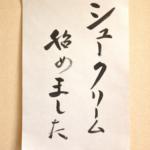 シュークリーム
始めました